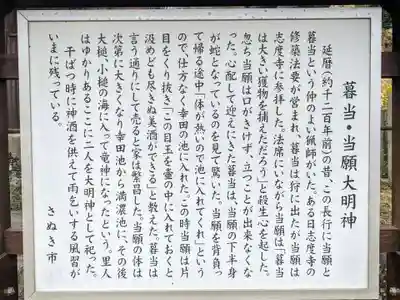 暮当・当願大明神
延暦（約千二百年前）の昔、この長行に当願と
暮当という仲のよい猟師がいた。ある日志度寺の
修築法要が営まれ、暮当は狩に出たが当願は
志度寺に参拝した。法席にいながら当願は「暮当
は大きい獲物を捕えただろう」と殺生心を起した。
忽ち当願は口がきけず、立つことが出来なくな
った。心配して迎えにきた暮当は、当願の下半身
が蛇となっているのを見て驚いた。当願を背負っ
て帰る途中「体が熱いので池に入れてくれ」という
ので、仕方なく幸田の池に入れた。この時当願は片
目をくり抜き「この目玉を壷の中に入れておくと
汲めども尽きぬ美酒ができる」と教えた。暮当は
言う通りにして売ると家は繁昌した。当願の体は
次第に大きくなり幸田池から満濃池に、その後
大槌、小槌の海に入って竜神になったという。里人
はゆかりあるここに二人を大明神として祀った。
干ばつ時に神酒を供えて雨乞いする風習が
いまに残っている。
さぬき市